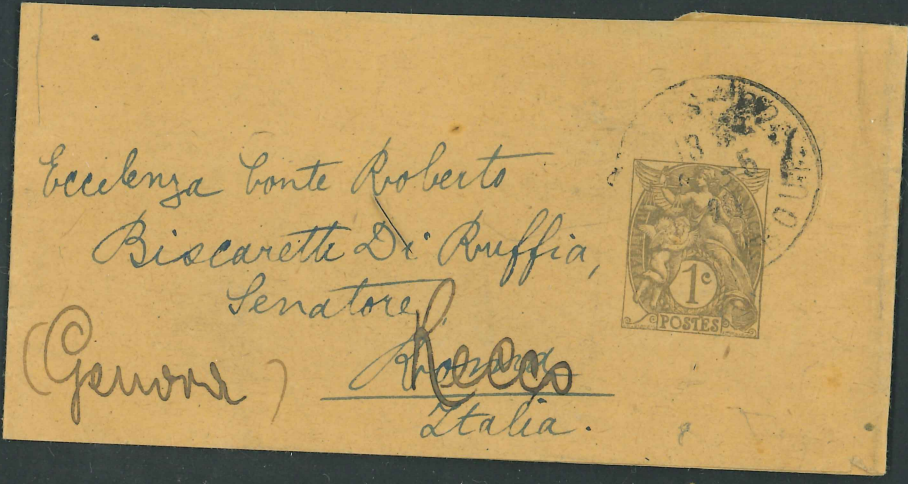 Eccelenza Conte Roberto
Biscaretti Di Ruffia,
Senatore
Roma
Recco
(Genova)
Italia.
1c
POSTES